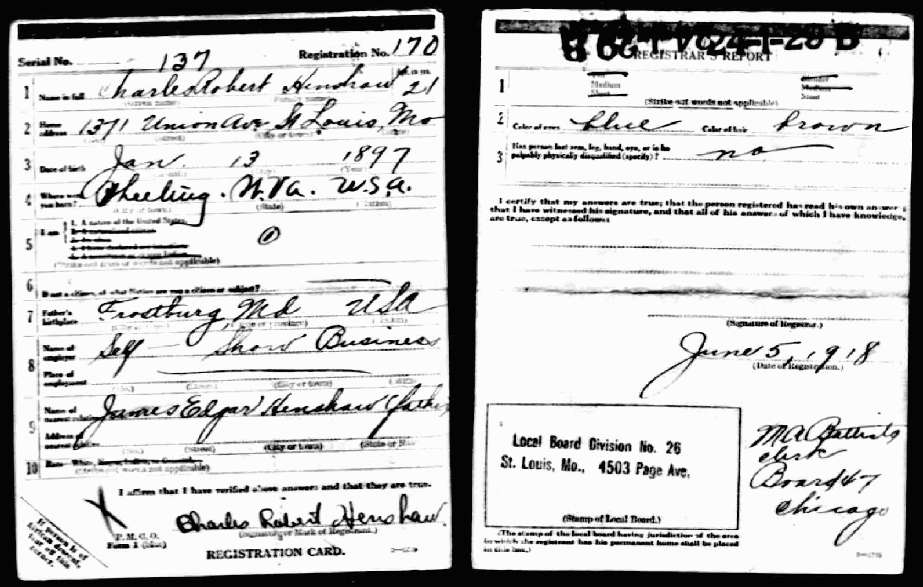 Serial No. 137 Registration No. 170
1 Name in full Charles Robert Henshaw 21
2 Home address 1371 Union Ave St Louis, Mo
3 Date of birth Jan 13 1897
4 Where were you born? Wheeling. W. Va. U.S.A.
(State)
5 I am 1. A native of the United States
①
6 If not a citizen, of what Nation are you a citizen or subject?
7 Father's birthplace Frostburg Md USA
8 Name of employer Self Show Business
Place of employment
(No.) (Street) (City or town) (State)
9 Name of nearest relative James Edgar Henshaw (father
Address of nearest relative
(No.) (Street) (City or town)
10 Race
I affirm that I have verified above answers and that they are true.
X Charles Robert Henshaw
P. M. G. O.
Form 1 (blue)
(Signature or Mark of Registrant.)
REGISTRATION CARD.
REGISTRAR'S REPORT
1
Medium Medium
(Strike out words not applicable)
2 Color of eyes blue Color of hair brown
3 Has person lost arm, leg, hand, eye, or is he palpably physically disqualified (specify)? no
I certify that my answers are true; that the person registered has read his own answers
that I have witnessed his signature, and that all of his answers of which I have knowledge,
are true, except as follows:
(Signature of Registrar.)
June 5, 1918
(Date of Registration.)
Local Board Division No. 26
St. Louis, Mo., 4503 Page Ave.
(Stamp of Local Board.)
clerk
Board 47
Chicago
(The stamp of the local board having jurisdiction of the area
in which the registrant has his permanent home shall be placed
in this box.)